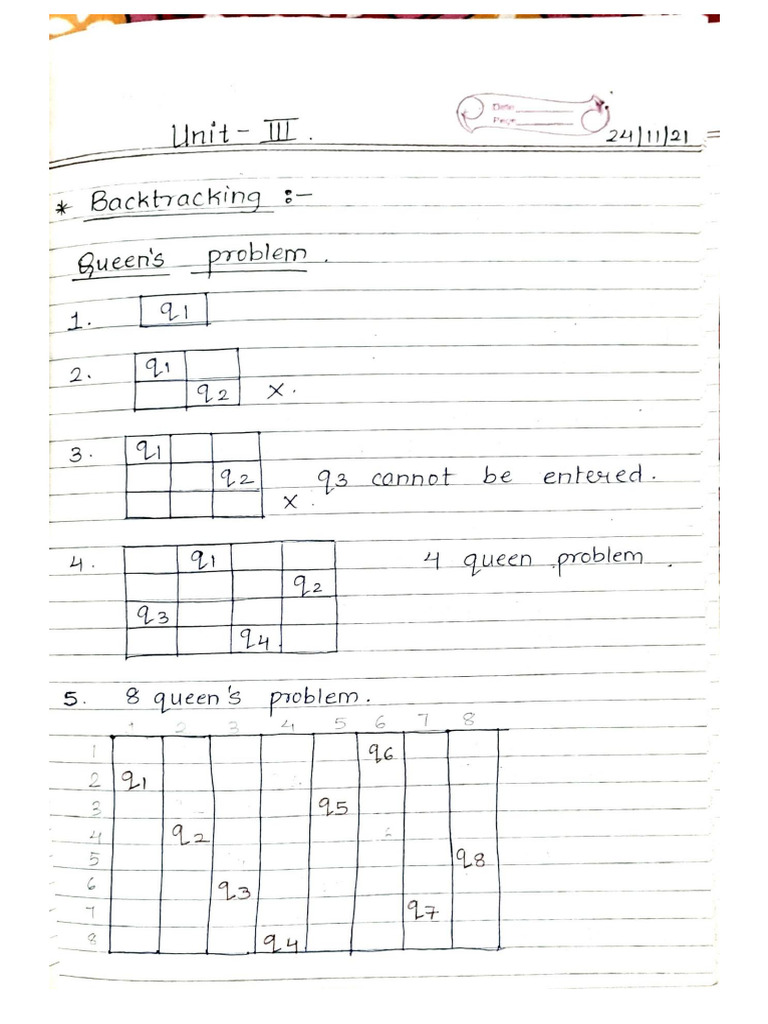 Date
Page
Unit - III.
24/11/21
* Backtracking :-
Queen's problem.
1. q1
2. q1
q2 x.
3. q1
q2 q3 cannot be entered.
x.
4. q1 4 queen problem.
q2
q3
q4
5. 8 queen's problem.
1 2 3 4 5 6 7 8
1 q6
2 q1
3 q5
4 q2
5 q8
6 q3
7 q7
8 q4